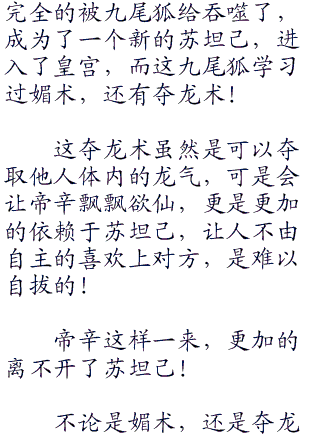 完全的被九尾狐给吞噬了，
成为了一个新的苏坦己，进
入了皇宫，而这九尾狐学习
过媚术，还有夺龙术！
这夺龙术虽然是可以夺
取他人体内的龙气，可是会
让帝辛飘飘欲仙，更是更加
的依赖于苏坦己，让人不由
自主的喜欢上对方，是难以
自拔的！
帝辛这样一来，更加的
离不开了苏坦己！
不论是媚术，还是夺龙